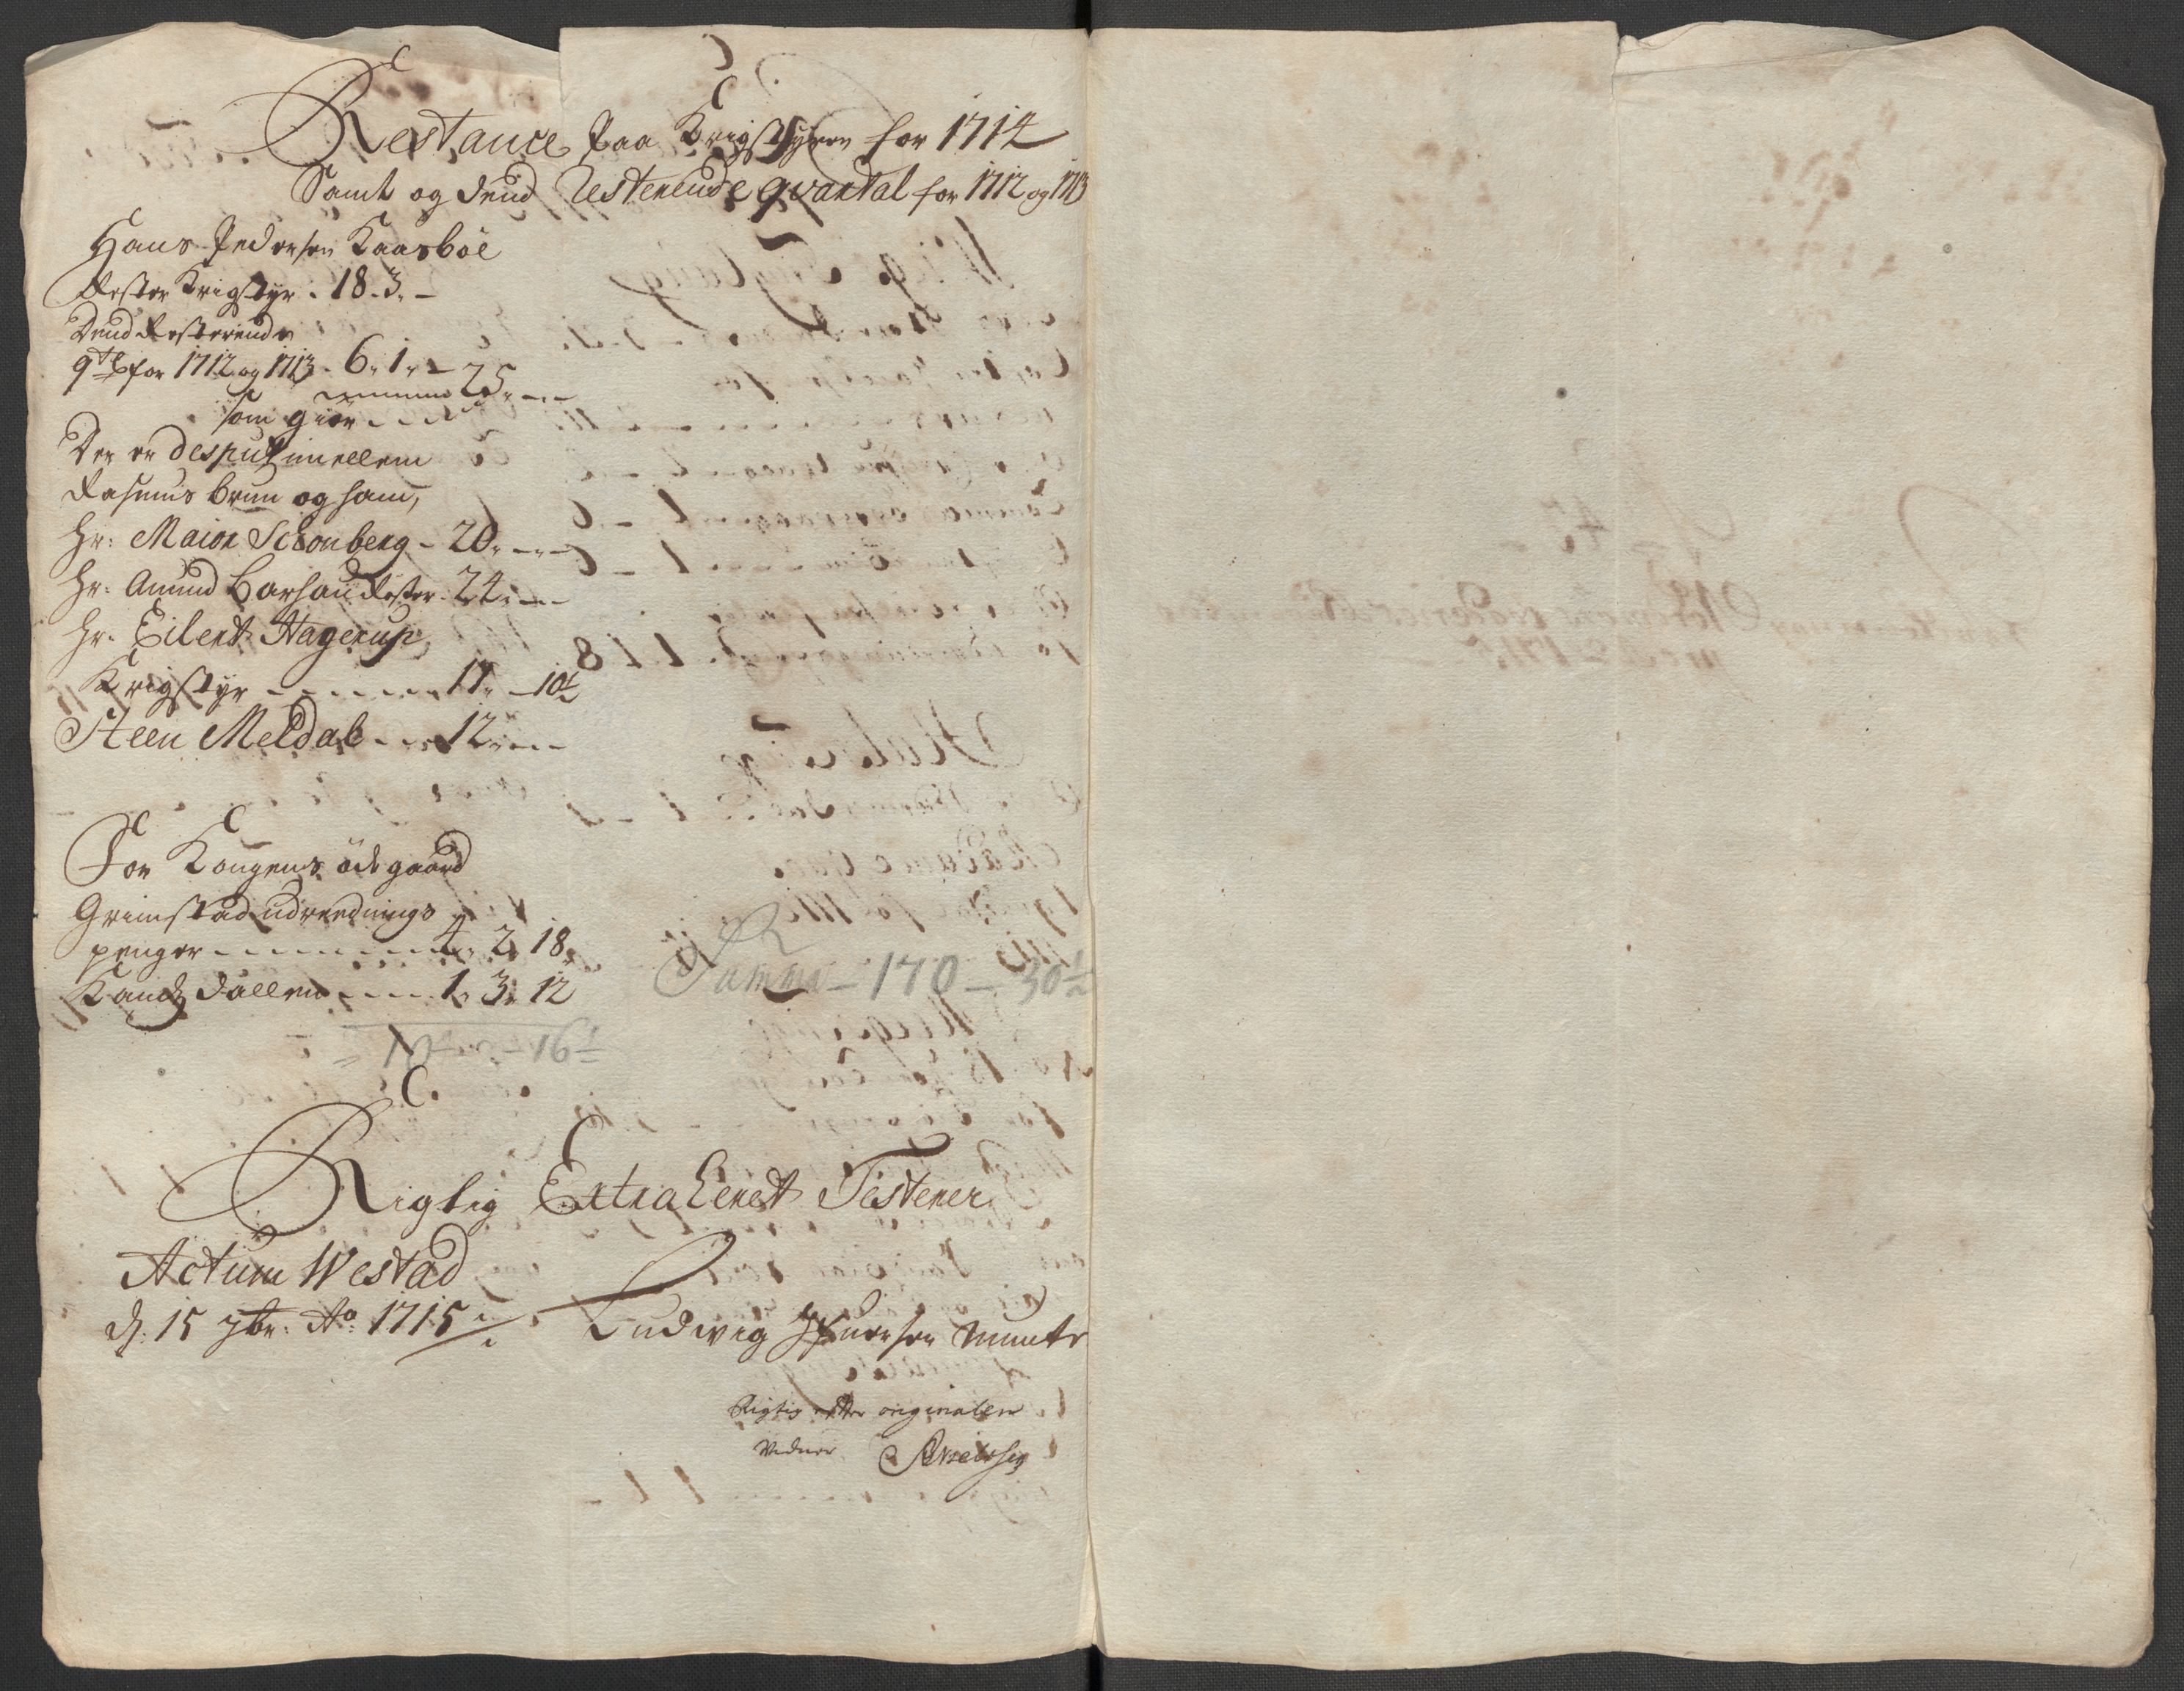 Restance Paa Krigstyren for 1714
Samt og dend Resterende qvartal for 1712 og 1713
Hans Pedersen Kaasböe
Rester Krigstyr . 18 . 3 . –
Dend Resterende
qtl for 1712 og 1713 – 6 . 1 . –
som giör . . . 25 . – . –
Der er desput imellem
Rasmus brun og ham,
Hr: Maior Schonberg – 20 . – . –
Hr: Amund Barhau Rester . 24 . – . –
Hr. Eilert Hagerup
Krigstyr . . . . . 17 . – 10½
Steen Meldal . . . 12 . – . –
For Kongens öde gaard
Grimstad udreednings
penger . . . . . 4 . 2 . 18 .
. . . . 1 . 3 . 12
Summa – 170 – 30½
16½
Rigtig Extraheret Testerer
Actum Westad
d. 15 7br: Ao 1715
Ludwig Munte
Rigtig efter originalen
Vidner